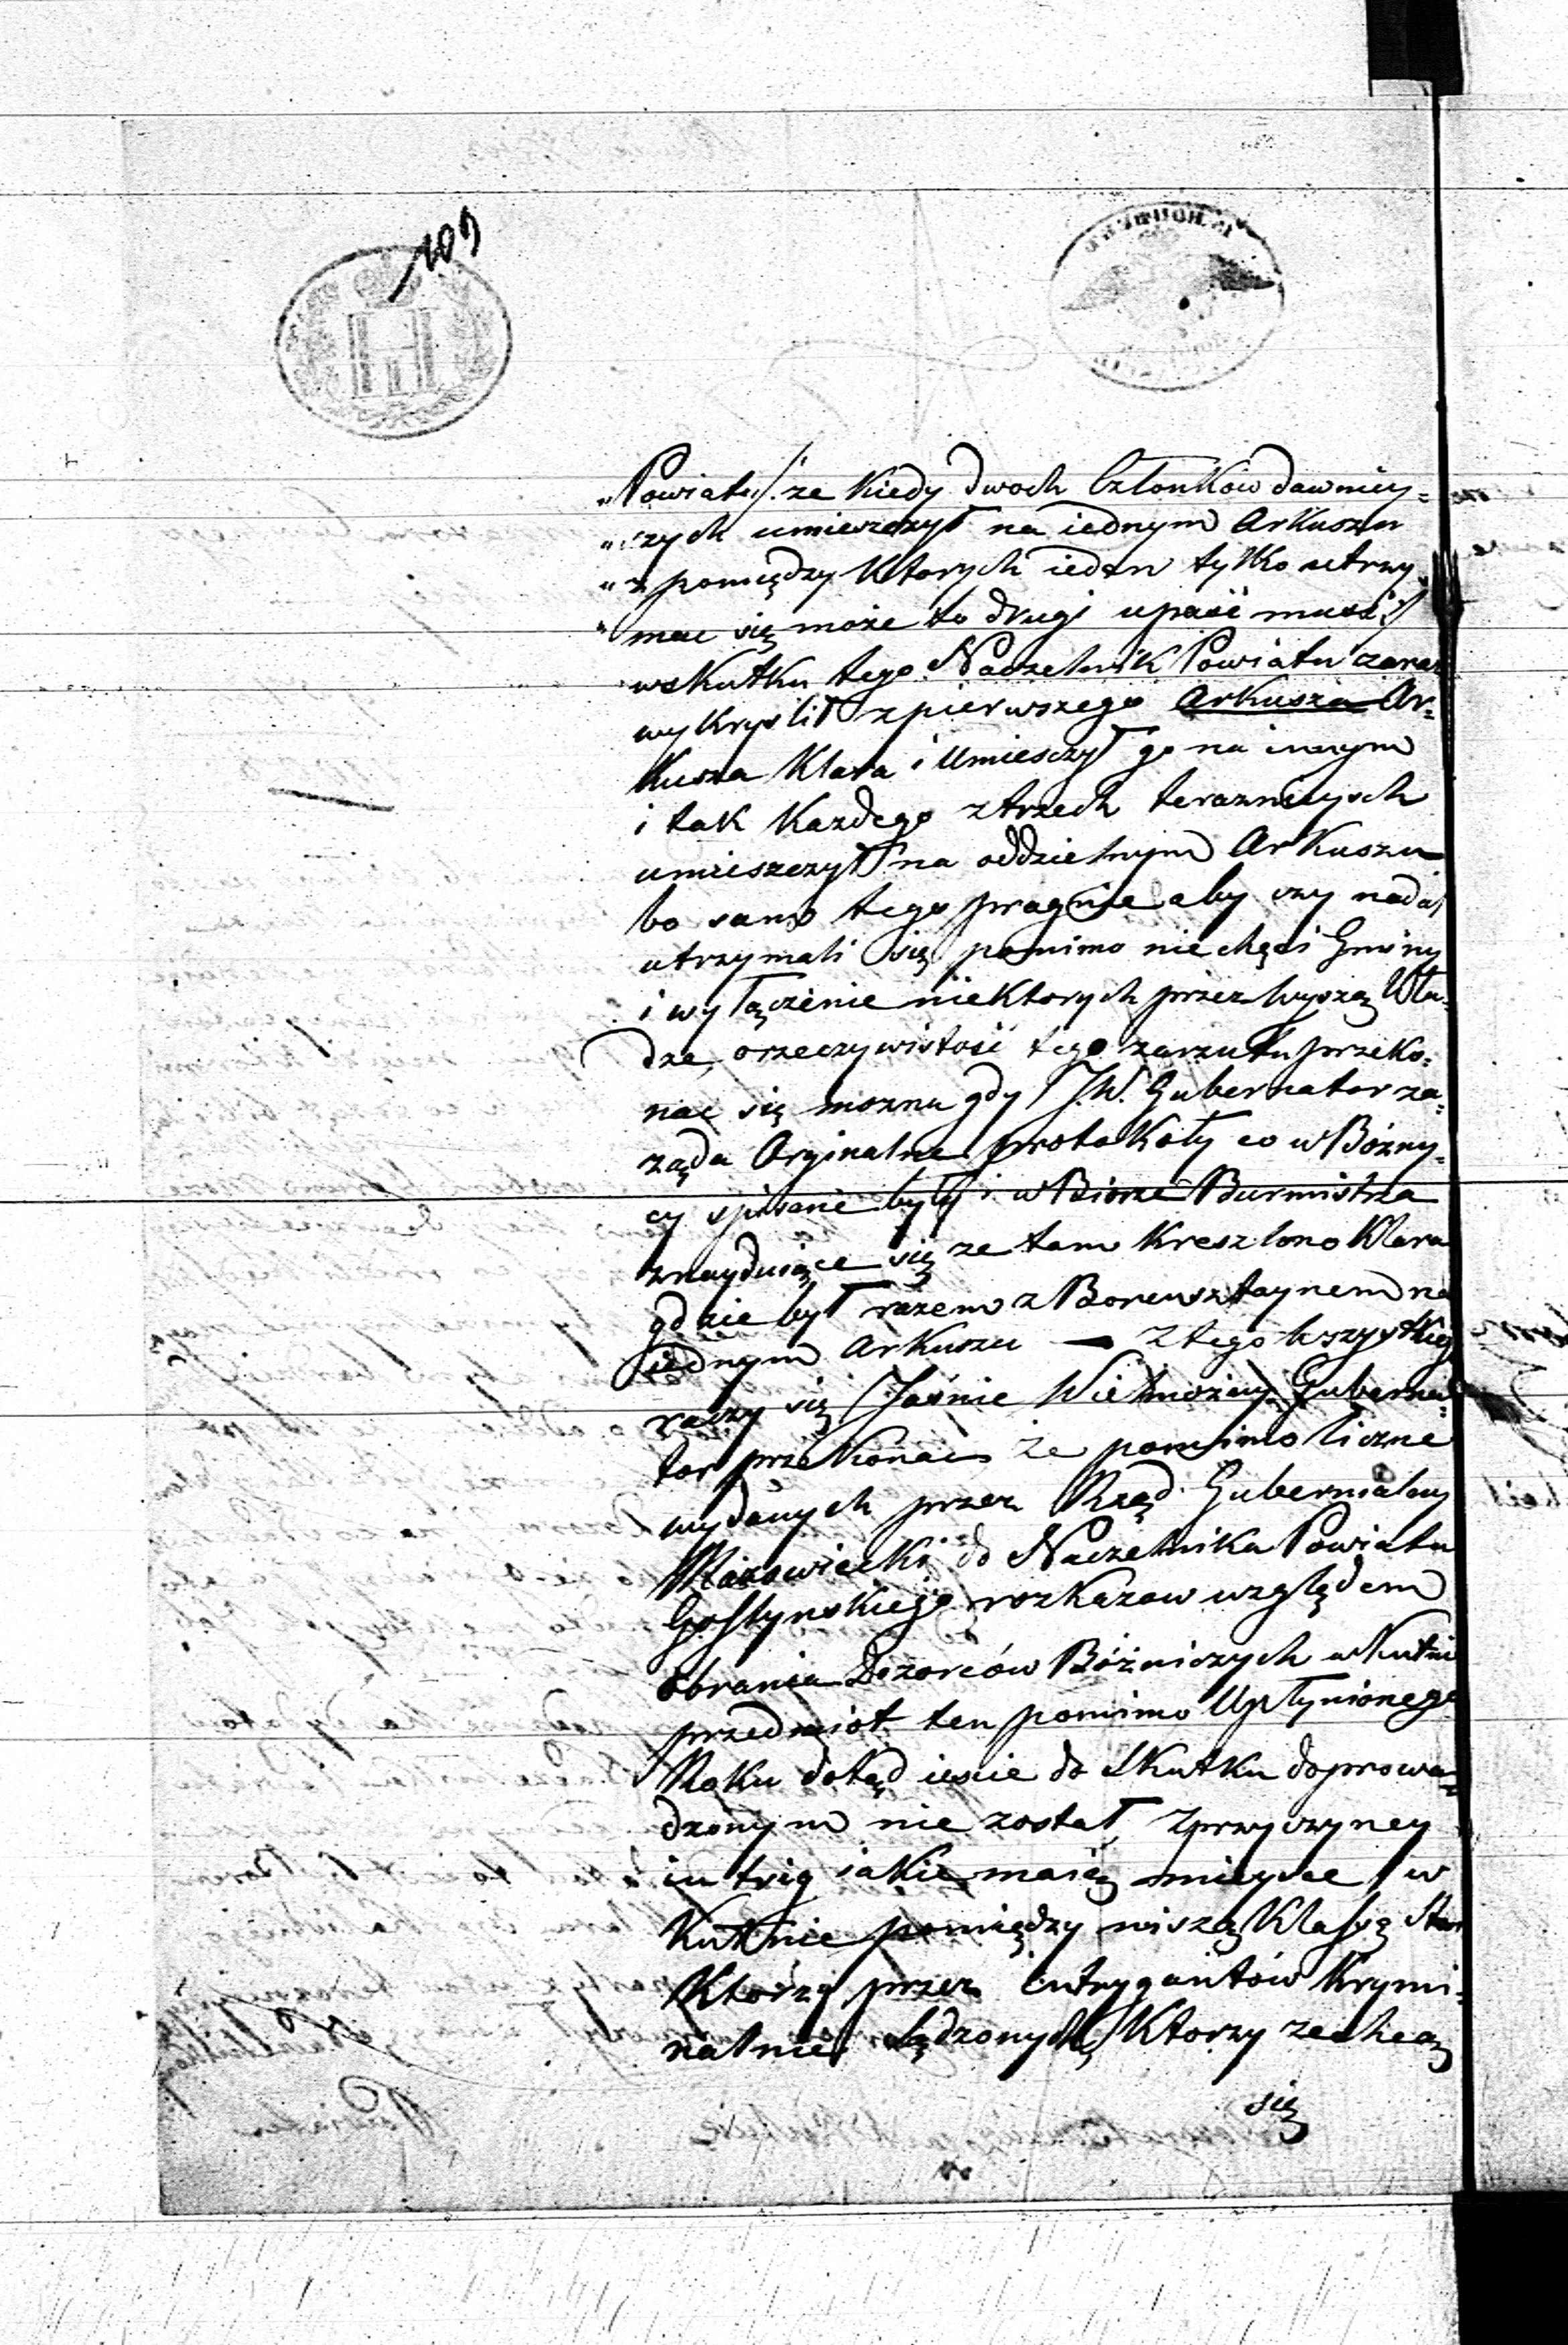 109
„Powiatu/: że Kiedy dwoch Członków dawniey=
„szych umieszczył na iednym Arkuszu
„z pomiędzy Ktorych ieden tylko utrzy
„mac się może to drugi upaść musi:/
wskutku tego Naczelnik Powiatu zaraz
wykryslił zpierwszego Arkusza Ar=
Kusza Klara i Umiesczył go na innym
i tak Kazdego ztrzech teraznieysch
umieszczył na oddzielnym ArKuszu
bo sam tego pragnie aby ony nadal
utrzymali się pomimo niechęci Gminy
i wyłączenie nieKtorych przez wyszą Wła=
dze, orzeczywistość tego zarzutu przeko=
nac się mozna gdy J.W. Gubernator za=
ząda Orginalne protoKoły co w Bóżny=
cy spisane były i w Biorze Burmistrza
znayduiące się ze tam Kreszlono Klara
gdzie był razem z Borensztaynem na
iednym arKuszu — Ztego wszystkieg
raczy się Jaśnie Wielmożny Guberna=
tor przeKonac że pomimo liczne
wydanych przez Rząd Gubernialny
Mazowiecki do Naczelnika Powiatu
Gostynskiego rozkazow względem
obrania Dozorców Bóżniczych w Kutnie
przedmiot ten pomimo Upłynionego
Roku dotąd iescie do Skutku doprowa=
dzonym nie został, Zprzyczyney
intrig iakie maią mieysce w
Kutnie pomiędzy niszą Klassą Star
Ktorzy przez intrygantów Krymi=
nalnie Sądzonych, Ktorzy zechcą
się